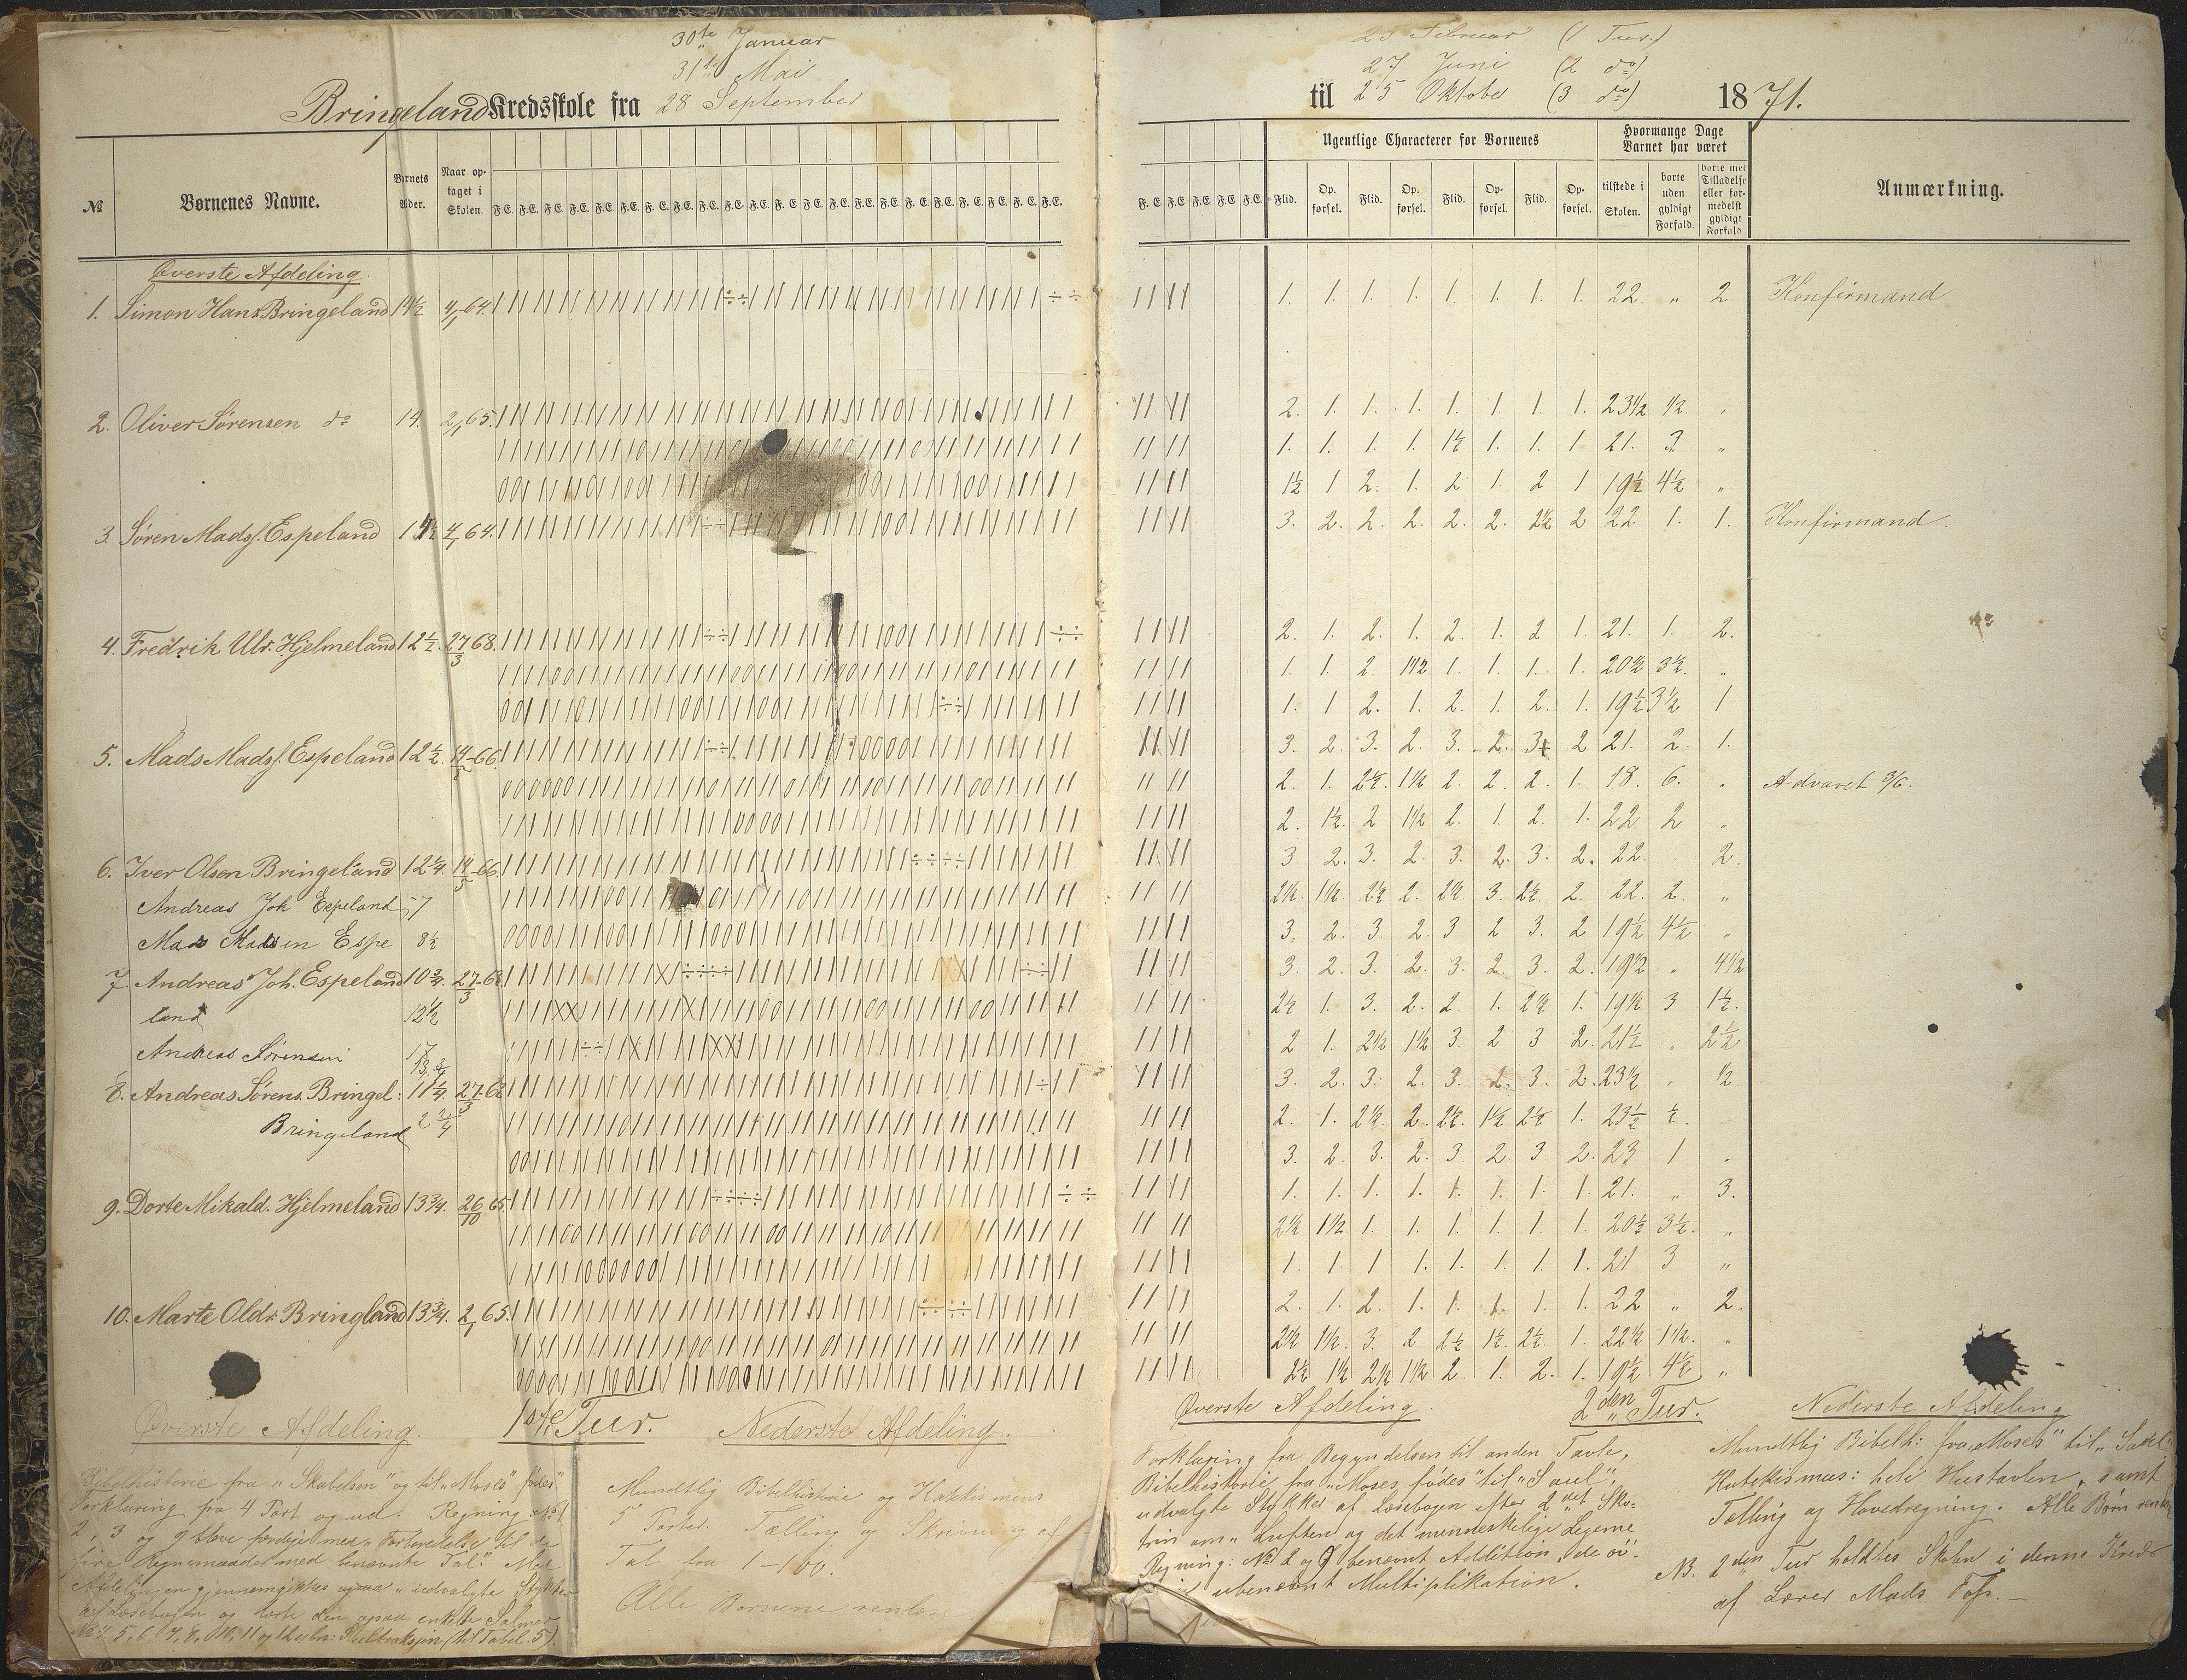 30te Januar
31te Mai
Bringeland Kredsskole fra 28 September
№
Børnenes Navne.
Barnets Alder.
Naar optaget i Skolen.
F.E. F.E. F.E. F.E. F.E. F.E. F.E. F.E. F.E. F.E. F.E. F.E. F.E. F.E. F.E. F.E. F.E. F.E. F.E. F.E. F.E. F.E.
Øverste Afdeling
1. Simon Hans. Bringeland 14½ 4/1 64.
2. Oliver Sørensen do 14. 2/1 65.
3. Søren Madss. Espeland 14½ 4/1 64.
4. Fredrik Ulr. Hjelmeland 12½. 27/3 68.
5. Mads Madss. Espeland 12½. 14/5 -66.
6. Iver Olsen Bringeland 12¼. 14/5 -66.
Andreas Joh Espeland 7
Mads Madsen Espe 8½
7. Andreas Joh. Espeland 10¾. 27/3 -68
land 12½
Andreas Sørensen 17
13¾
8. Andreas Sørens. Bringel: 11¼. 27/3 -68
Bringeland 2¾
9. Dorte Mikald. Hjelmeland 13¾. 26/10 65.
10. Marte Oldr. Bringland 13¾. 2/1 65.
Øverste Afdeling. 1ste Tur. Nederste Afdeling.
Bibelhistorie fra "Skabelsen" og til "Moses" fødes"
Forklaring fra 4 Part og ud. Regning: №1
2, 3 og 9 bleve færdige med "Forberedelse til de
fire Regnemaader med benævnte Tal." Med
Afdelingen gjennemgikkes ogsaa "udvalgte Stykker
af Læsebogen og lærte den ogsaa enkelte Salmer
Mundtlig Bibelhistorie og Katekismens
5 Parter. Tælling og Skrivning af
Tal fra 1-100.
Alle Børnene
25 Februar (1 Tur.)
27 Juni (2 do)
til 25 Oktober (3 do) 1871.
F.E. F.E. F.E. F.E. F.E.
Ugentlige Characterer for Børnenes
Flid. Opførsel. Flid. Opførsel. Flid. Opførsel. Flid. Opførsel.
Hvormange Dage Barnet har været
tilstede i Skolen.
borte uden gyldigt Forfald.
borte med Tilladelse eller formedelst gyldigt Forfald
Anmærkning.
1. 1. 1. 1. 1. 1. 1. 1. 22. " 2. Konfirmand
2. 1. 1. 1. 1. 1. 1. 1. 23½ ½. "
1. 1. 1. 1. 1½ 1. 1. 1 21. 3. "
1½ 1 2. 1. 2 1. 2 1 19½ 4½ "
3. 2. 2. 2. 2. 2. 2½ 2 22 1. 1. Konfirmand.
2. 1. 2. 1. 2. 1. 2 1. 21. 1. 2.
1. 1. 2 1½ 1. 1. 1. 1. 20½ 3½. "
1. 1 2. 1. 2. 1. 2. 1. 19½ 3½ 1
3. 2. 3. 2. 3. 2. 3 2 21. 2. 1.
2. 1. 2½. 1½ 2. 2. 2. 1. 18. 6. " Advaret 3/6.
2. 1½. 2 1½ 2. 1. 2. 1. 22 2 "
3. 2. 3. 2. 3. 2. 3. 2. 22. 2.
2½. 1½. 2½ 2. 2½. 3. 2½. 2. 22. 2. "
3. 2. 3. 2. 3 2 3. 2 19½ 4½ "
3. 2. 3. 2. 3. 2. 3. 2. 19½ " 4½
2½ 1. 3. 2. 2. 1. 2½ 1. 19½ 3 1½.
2 1. 2½ 1½ 3. 2 3 2. 21½ " 2½
3. 2. 3. 2. 3. 2. 3. 2. 23½ " ½
2. 1. 2½. 2. 2½. 1½ 2½ 1. 23½ ½.
3. 2. 3. 2. 3. 2. 3 2. 23 1 "
1. 1. 1. 1. 1. 1. 1. 1 21. " 3.
2½ 1½ 1. 1. 1. 1. 1. 1. 20½ 3½. "
1. 1. 1 1. 1. 1. 1. 1. 21 3 "
2. 1. 2. 1. 1. 1. 1. 1. 22 " 2.
2½ 1½. 3. 2 2½ 1½. 2½. 1. 22½ 1½. "
2½ 1½ 2½ 1½ 2. 1. 2. 1. 19½ 4½ "
Øverste Afdeling. 2den Tur. Nederste Afdeling
Forklaring fra Begyndelsen til anden Tavle,
Bibelhistorie fra "Moses fødes" til "Saul",
udvalgte Stykker af Læsebogen efter 2det Sko-
trin om "Luften og det menneskelige Legeme
Regning: № 2 og 9 benævnt Addition, de øv.
ubenævnt Multiplikation.
Mundtlig Bibelh: fra "Moses" til "Saul"
Katekismus: hele Hustavlen, samt
Tælling og Hovedregning. Alle Børn
NB. 2den Tur holdtes Skolen i denne Kreds
af Lærer Mads Foss. —